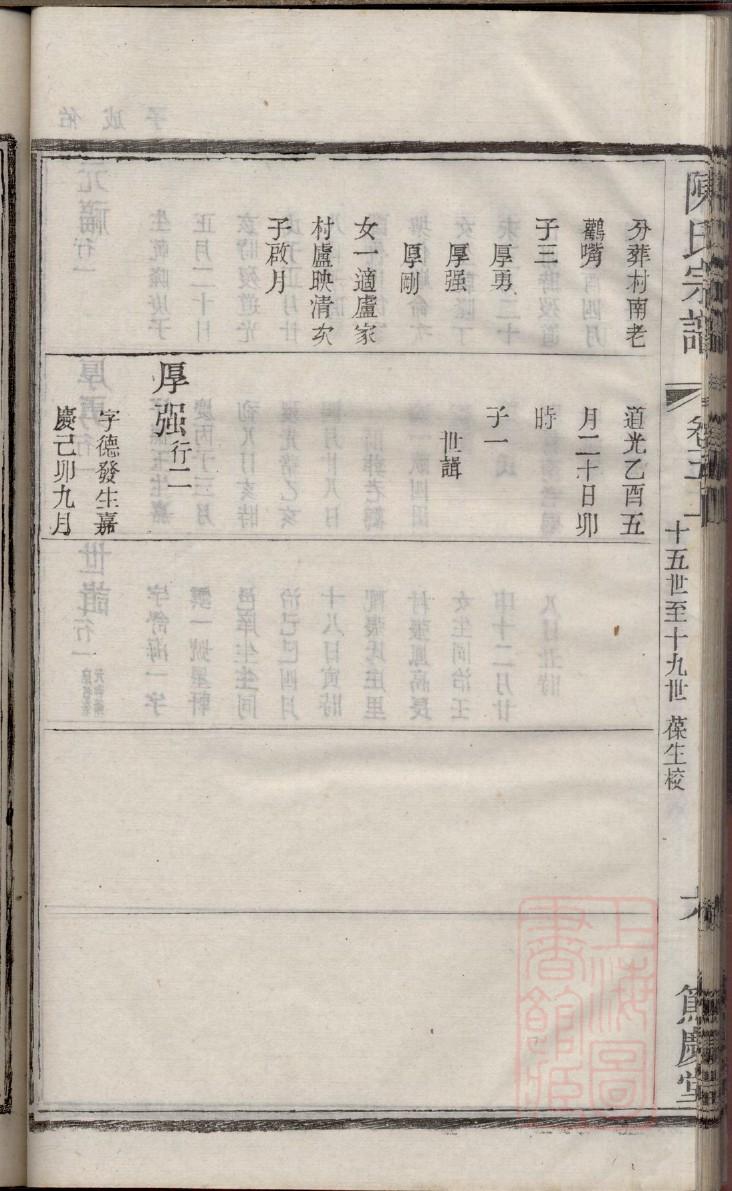 陳氏宗譜
卷三
十五世至十九世 葆生校
篤慶堂
分葬村南老
鸛嘴
子三
厚勇
厚强
厚剛
女一適盧家
村盧映清次
子啟月
道光乙酉五
月二十日卯
時
子一
世諎
厚强行二
字德發生嘉
慶己卯九月
上海圖書館藏